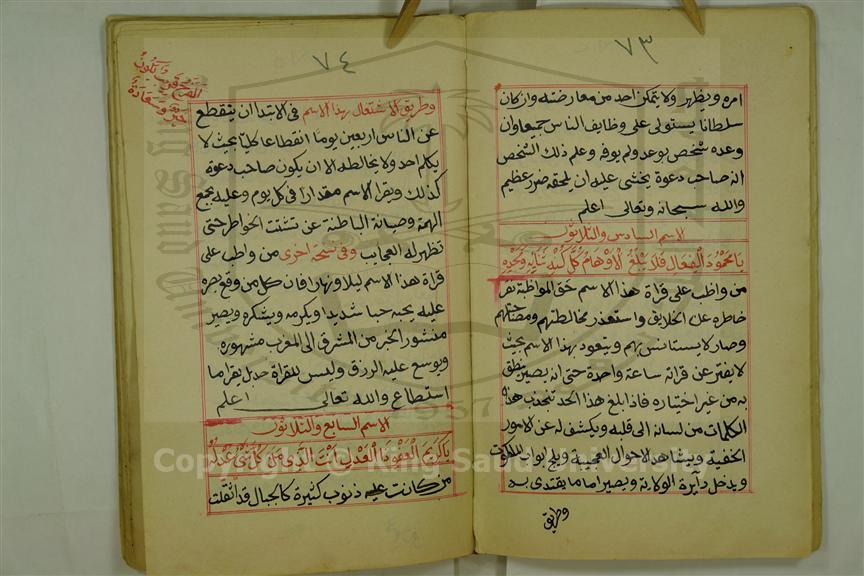 ٧٣
امره ويظهر ولا يتمكن احد من معارضته وان كان
سلطانا يستولى على وظايف الناس جميعا وان
وعده شخص بوعد ولم يوفه وعلم ذلك الشخص
انه صاحب دعوة يخشى عليه ان يلحقه ضرر عظيم
والله سبحانه وتعالى اعلم
الاسم السادس والثلاثون
يا محمود الفعال فلا يبلغ الاوهام كل كنه ثنايه ومجده
من واظب على قراة هذا الاسم حق المواظبة نفر
خاطره عن الخلايق واستعذر مخالطتهم ومصاحبتهم
وصار لا يستانس بهم ويتعود بهذا الاسم بحيث
لا يفتر عن قراته ساعة واحدة حتى انه يصير ينطق
به من غير اختياره فاذا بلغ هذا الحد تنجذب هذه
الكلمات من لسانه الى قلبه ويكشف له عن الامور
الخفية ويشاهد الاحوال العجيبة ويلج ابواب الملكوت
ويدخل دايرة الولاية ويصير اماما يقتدى به
وطريق
٧٤
وطريق الاشتغال بهذا الاسم فى الابتدا ان ينقطع
عن الناس اربعين يوما انقطاعا كليا بحيث لا
يكلم احد ولا يخالطه الا ان يكون صاحب دعوة
كذلك ويقرا الاسم مقدارا فى كل يوم وعليه بجمع
الهمة وصيانة الباطنة عن تشتت الخواطر حتى
تظهر له العجايب وفى نسخة اخرى من واظب على
قراة هذا الاسم ليلا ونهارا فان كل من وقع بصره
عليه يحبه حبا شديدا ويكرمه ويشكره ويصير
منشور الخبر من المشرق الى المغرب مشهوره
ويوسع عليه الرزق وليس للقراة حد بل يقرا ما
استطاع والله تعالى اعلم
الاسم السابع والثلاثون
يا كريم العفو ذا العدل انت الذى من كل شئ عدله
من كانت عليه ذنوب كثيرة كالجبال قد اثقلت
Copyright © King Saud University
1957